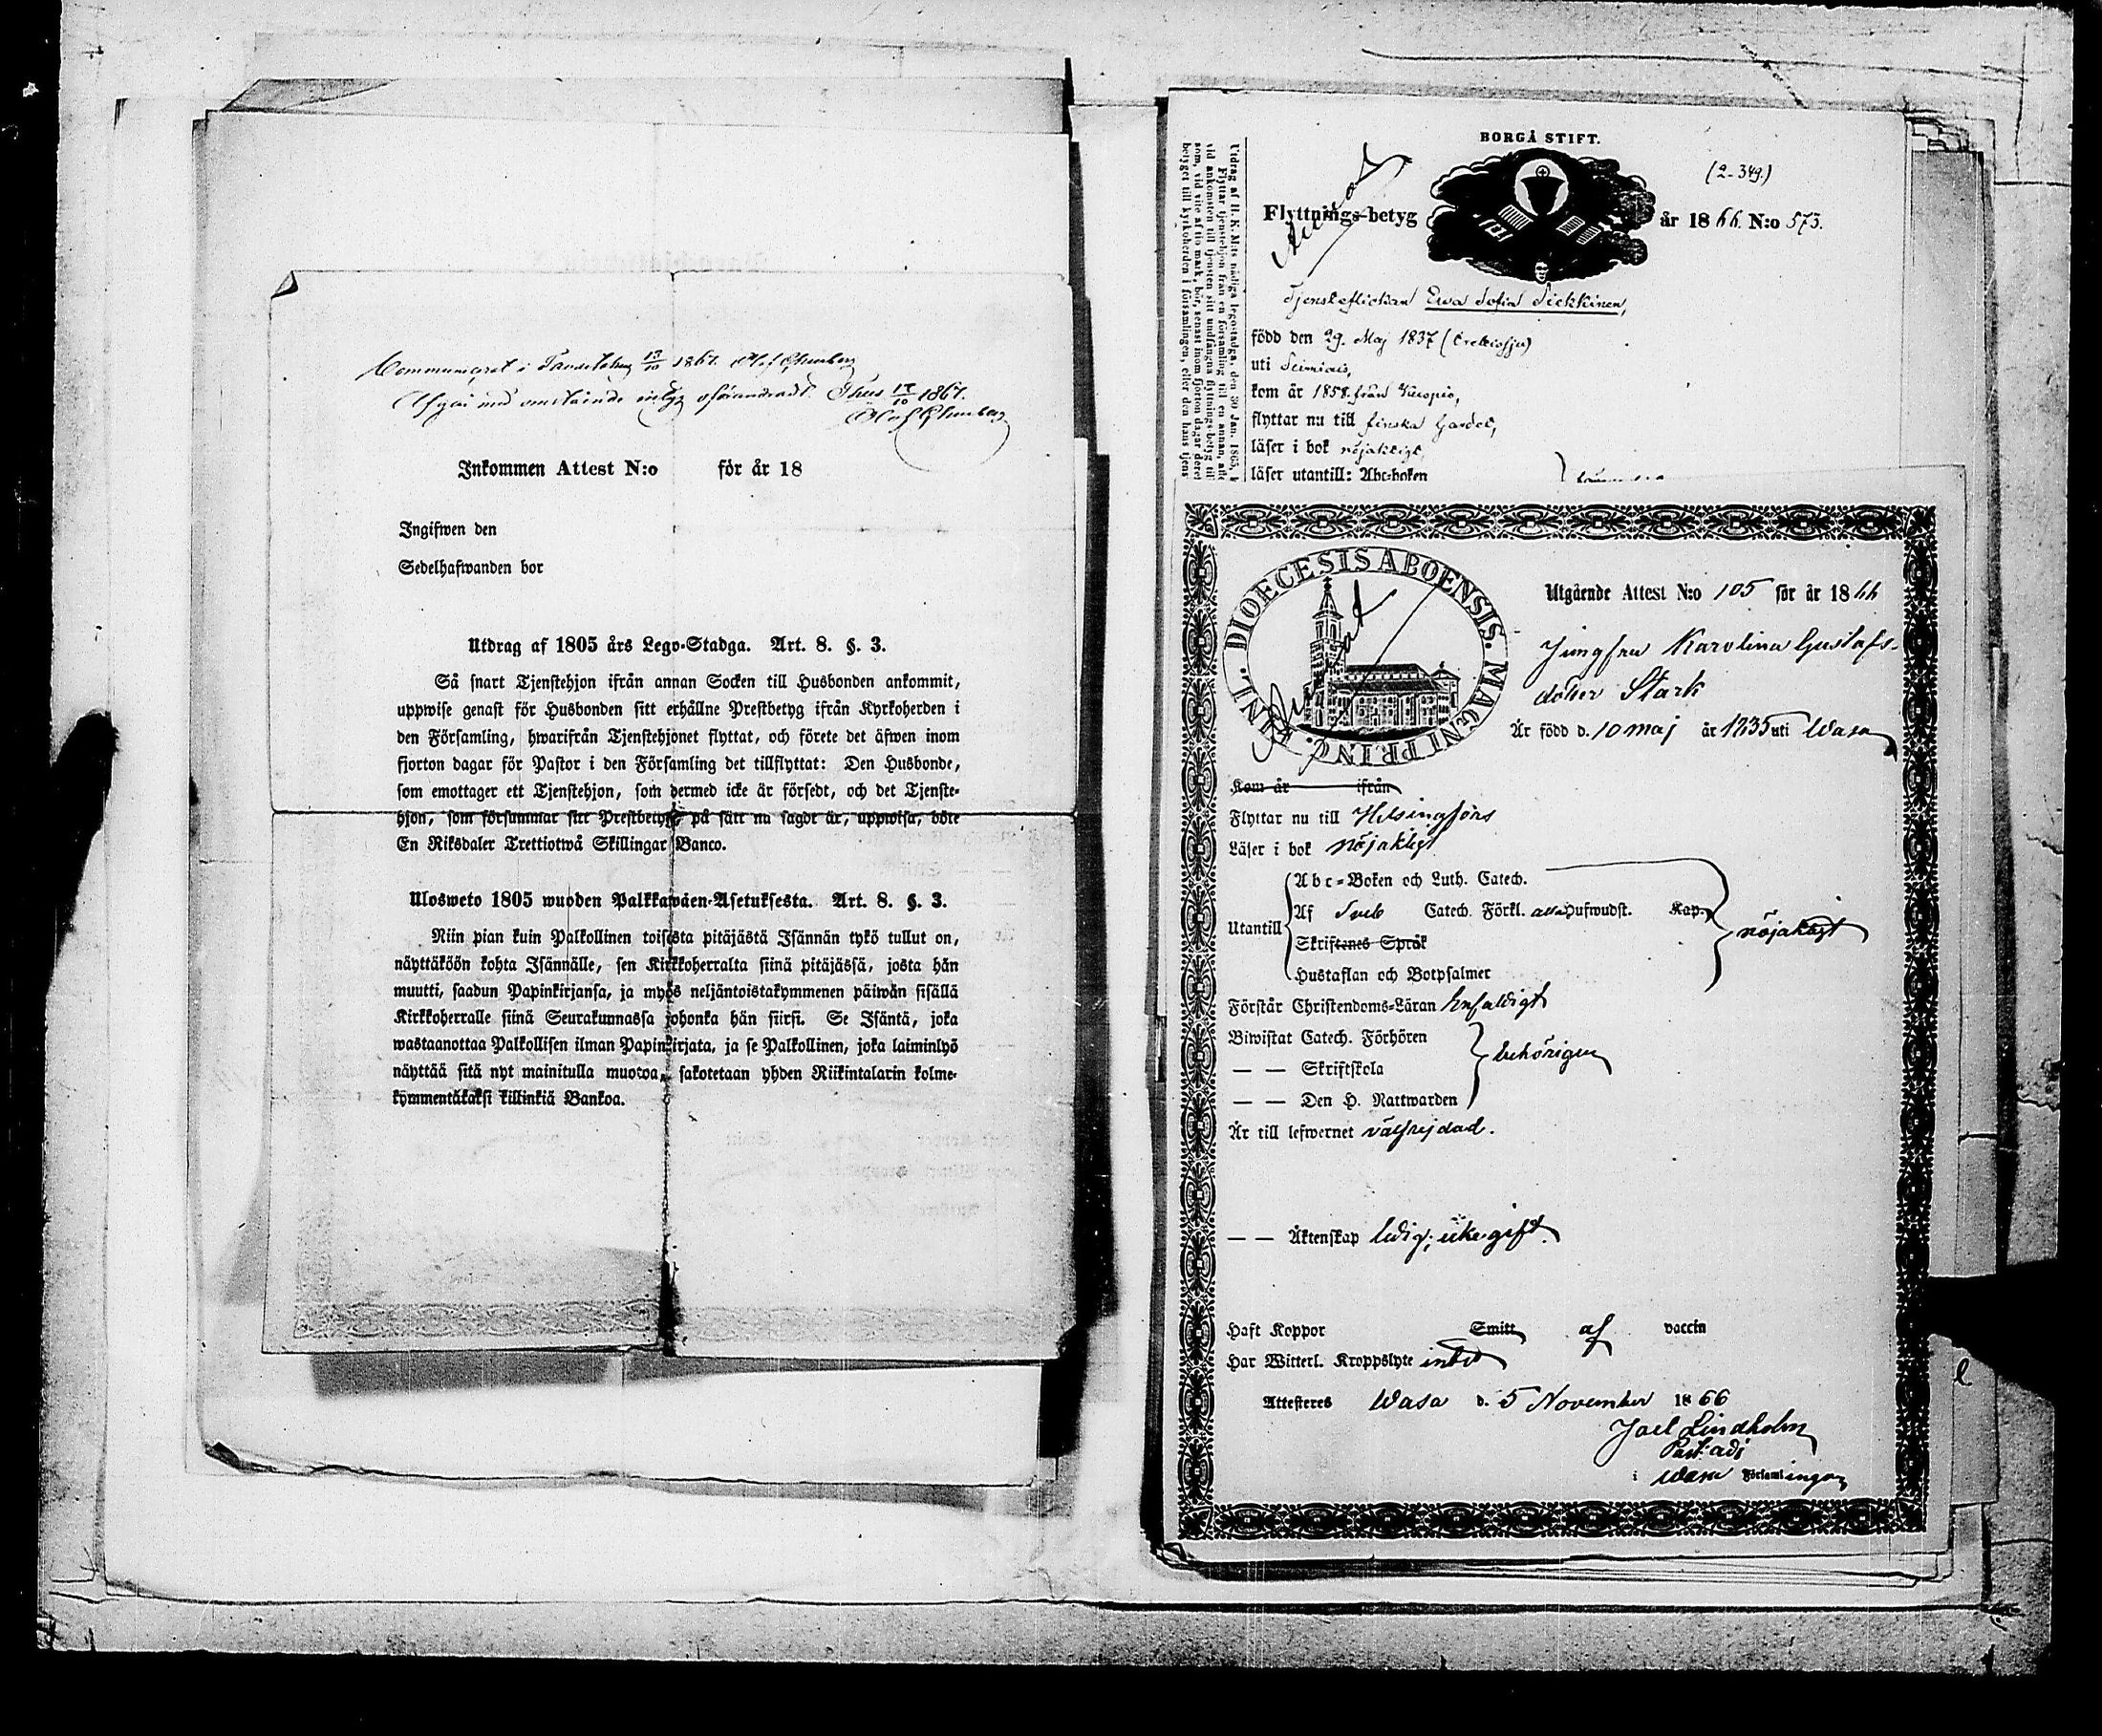 Communicerat i Tavastehus 13/10 1867. Olof
Afgår med omstående betyg oförändradt. Thus 17/10 1867.
Olof
Inkommen Attest N:o för år 18
Ingifwen den
Sedelhafwanden bor
Utdrag af 1805 års Lego-Stadga. Art. 8. §. 3.
Så snart Tjenstehjon ifrån annan Socken till Husbonden ankommit,
uppwise genast för Husbonden sitt erhållne Prestbetyg ifrån Kyrkoherden i
den Församling, hwarifrån Tjenstehjonet flyttat, och förete det äfwen inom
fjorton dagar för Pastor i den Församling det tillflyttat: Den Husbonde,
som emottager ett Tjenstehjon, som dermed icke är försedt, och det Tjenste-
hjon, som försummar sitt Prestbetyg på sätt nu sagdt är, uppwisa, böte
En Riksdaler Trettiotwå Skillingar Banco.
Ulosweto 1805 wuoden Palkkawäen-Asetuksesta. Art. 8. §. 3.
Niin pian kuin Palkollinen toisesta pitäjästä Isännän tykö tullut on,
näyttäköön kohta Isännälle, sen Kirkkoherralta siinä pitäjässä, josta hän
muutti, saadun Papinkirjansa, ja myös neljäntoistakymmenen päiwän sisällä
Kirkkoherralle siinä Seurakunnassa johonka hän siirsi. Se Isäntä, joka
wastaanottaa Palkollisen ilman Papinkirjata, ja se Palkollinen, joka laiminlyö
näyttää sitä nyt mainitulla muotoa, sakotetaan yhden Riikintalarin kolme-
kymmentäkaksi killinkiä Bankoa.
BORGÅ STIFT.
(2-349.)
Flyttnings-betyg år 1866. N:o 573.
Tjensteflickan Ewa Sofia Sickkinen,
född den 29. Maj 1837
uti
kom år 1858. från Kuopio,
flyttar nu till finska Gardet,
läser i bok nöjaktigt,
läser utantill: Abc-boken
Utdrag af H. K. M:ts nådiga legostadga, den 30 Jan. 1865,
Flyttar tjenstehjon från en församling till en annan,
vid ankomsten till tjensten sitt undfångna flyttnings-betyg till
som, vid vite af tio mark, bör, senast inom fjorton dagar deref
betyget till kyrkoherden i församlingen, eller den hans tjens
DIOECESIS ABOENSIS. MAGNI PRINC. FINL.
Utgående Attest N:o 105 för år 1866
Jungfru Karolina Gustafs-
dotter Stark
Är född d. 10 maj år 1835 uti Wasa
Kom år ifrån
Flyttar nu till Helsingfors
Läser i bok nöjaktigt
Abc-Boken och Luth. Catech.
Af Sveb Catech. Förkl. alla Hufwudst. Kap.
Utantill nöjaktigt
Skriftenes Språk
Hustaflan och Botpsalmer
Förstår Christendoms-Läran enfaldigt
Biwistat Catech. Förhören
— — Skriftskola behörigen
— — Den H. Nattwarden
Är till lefwernet välfrejdad.
— — Äktenskap ledig; icke gift.
Haft Koppor Smitt af vaccin
Har Witterl. Kroppslyte intet
Attesteres Wasa d. 5 November 1866
Joel Lindholm
Past: adj
i Wasa Församlingar